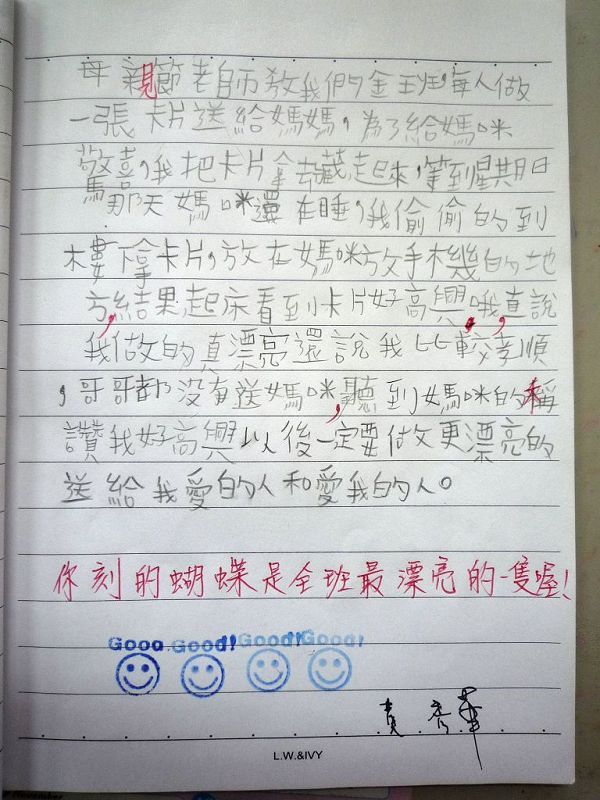 母親節老師教我們全班每人做
一張卡片送給媽媽，為了給媽咪
驚喜，我把卡片拿去藏起來，等到星期日
那天媽咪還在睡，我偷偷的到
樓下拿卡片，放在媽咪放手機的地
方，結果起床看到卡片好高興哦，直說
我做的真漂亮還說我比較孝順
，哥哥都沒有送媽咪，聽到媽咪的稱
讚我好高興以後一定要做更漂亮的
送給我愛的人和愛我的人。
你刻的蝴蝶是全班最漂亮的一隻喔！
Good Good! Good! Good!
L.W.&IVY
November